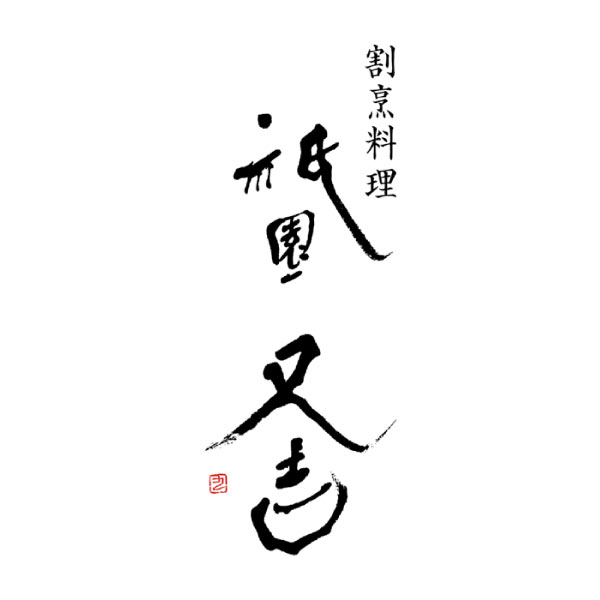 割烹料理
祇園 又吉